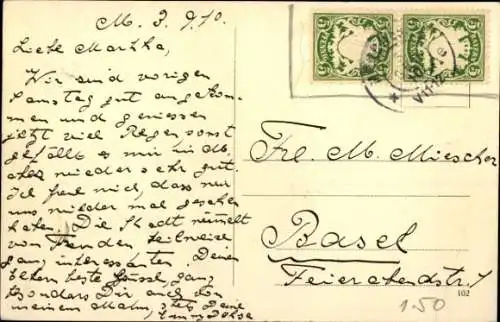 M. 3. 9. 10.
Liebe Martha,
Wir sind vorigen
Samstag gut angekom-
men und geniessen
jetzt viel Regen sonst
gefällt es mir
aber wieder sehr gut.
Ich freue mich, dass wir
uns wieder mal gesehen
haben. Die Stadt wimmelt
von Fremden teilweise
ganz interessanten. Deinen
lieben beste Grüsse, ganz
besonders Dir, auch von
meinem Mann, stets Deine
5 5
Frl. M. Miescher
Basel
Feierabendstr. 1
102
1.50